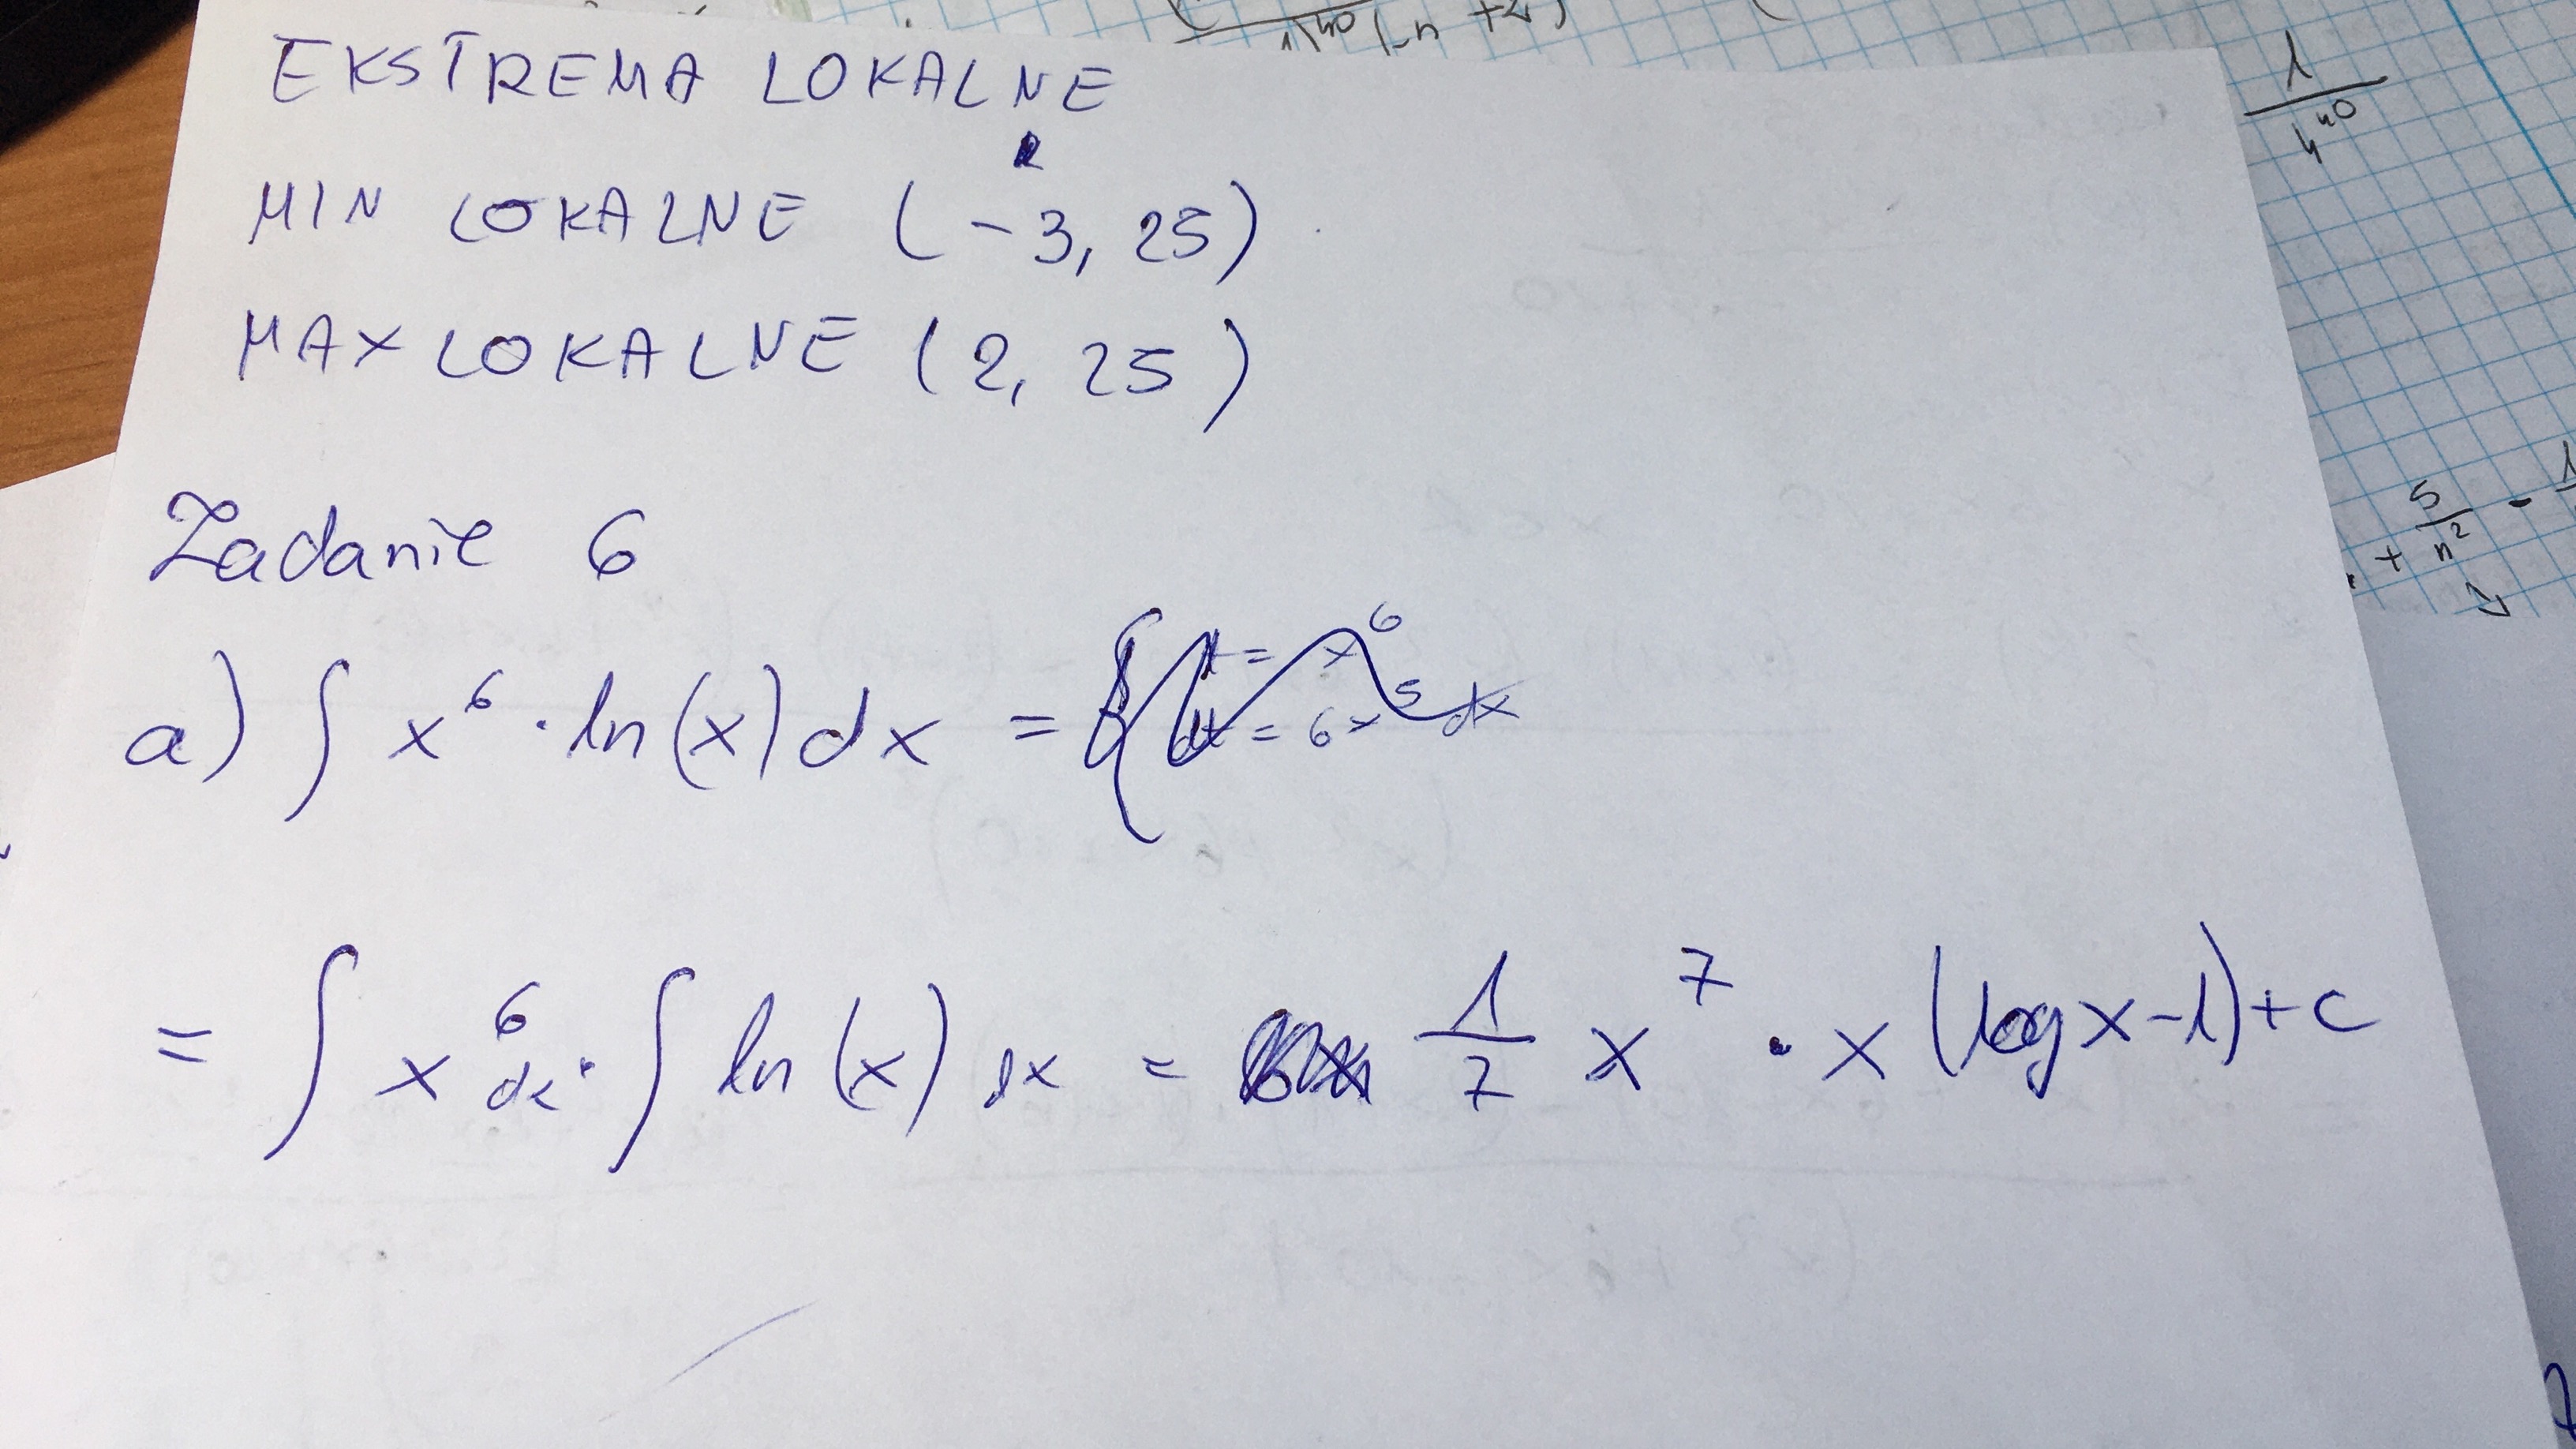 EKSTREMA LOKALNE
MIN LOKALNE (-3, 25)
MAX LOKALNE (2, 25)
Zadanie 6
a) ∫ x⁶ · ln(x) dx = { t = x⁶
dt = 6x⁵ dx
= ∫ x⁶ dx · ∫ ln(x) dx = 1/7 x⁷ · x (log x - 1) + c
1/4⁴⁰
+ 5/n² -